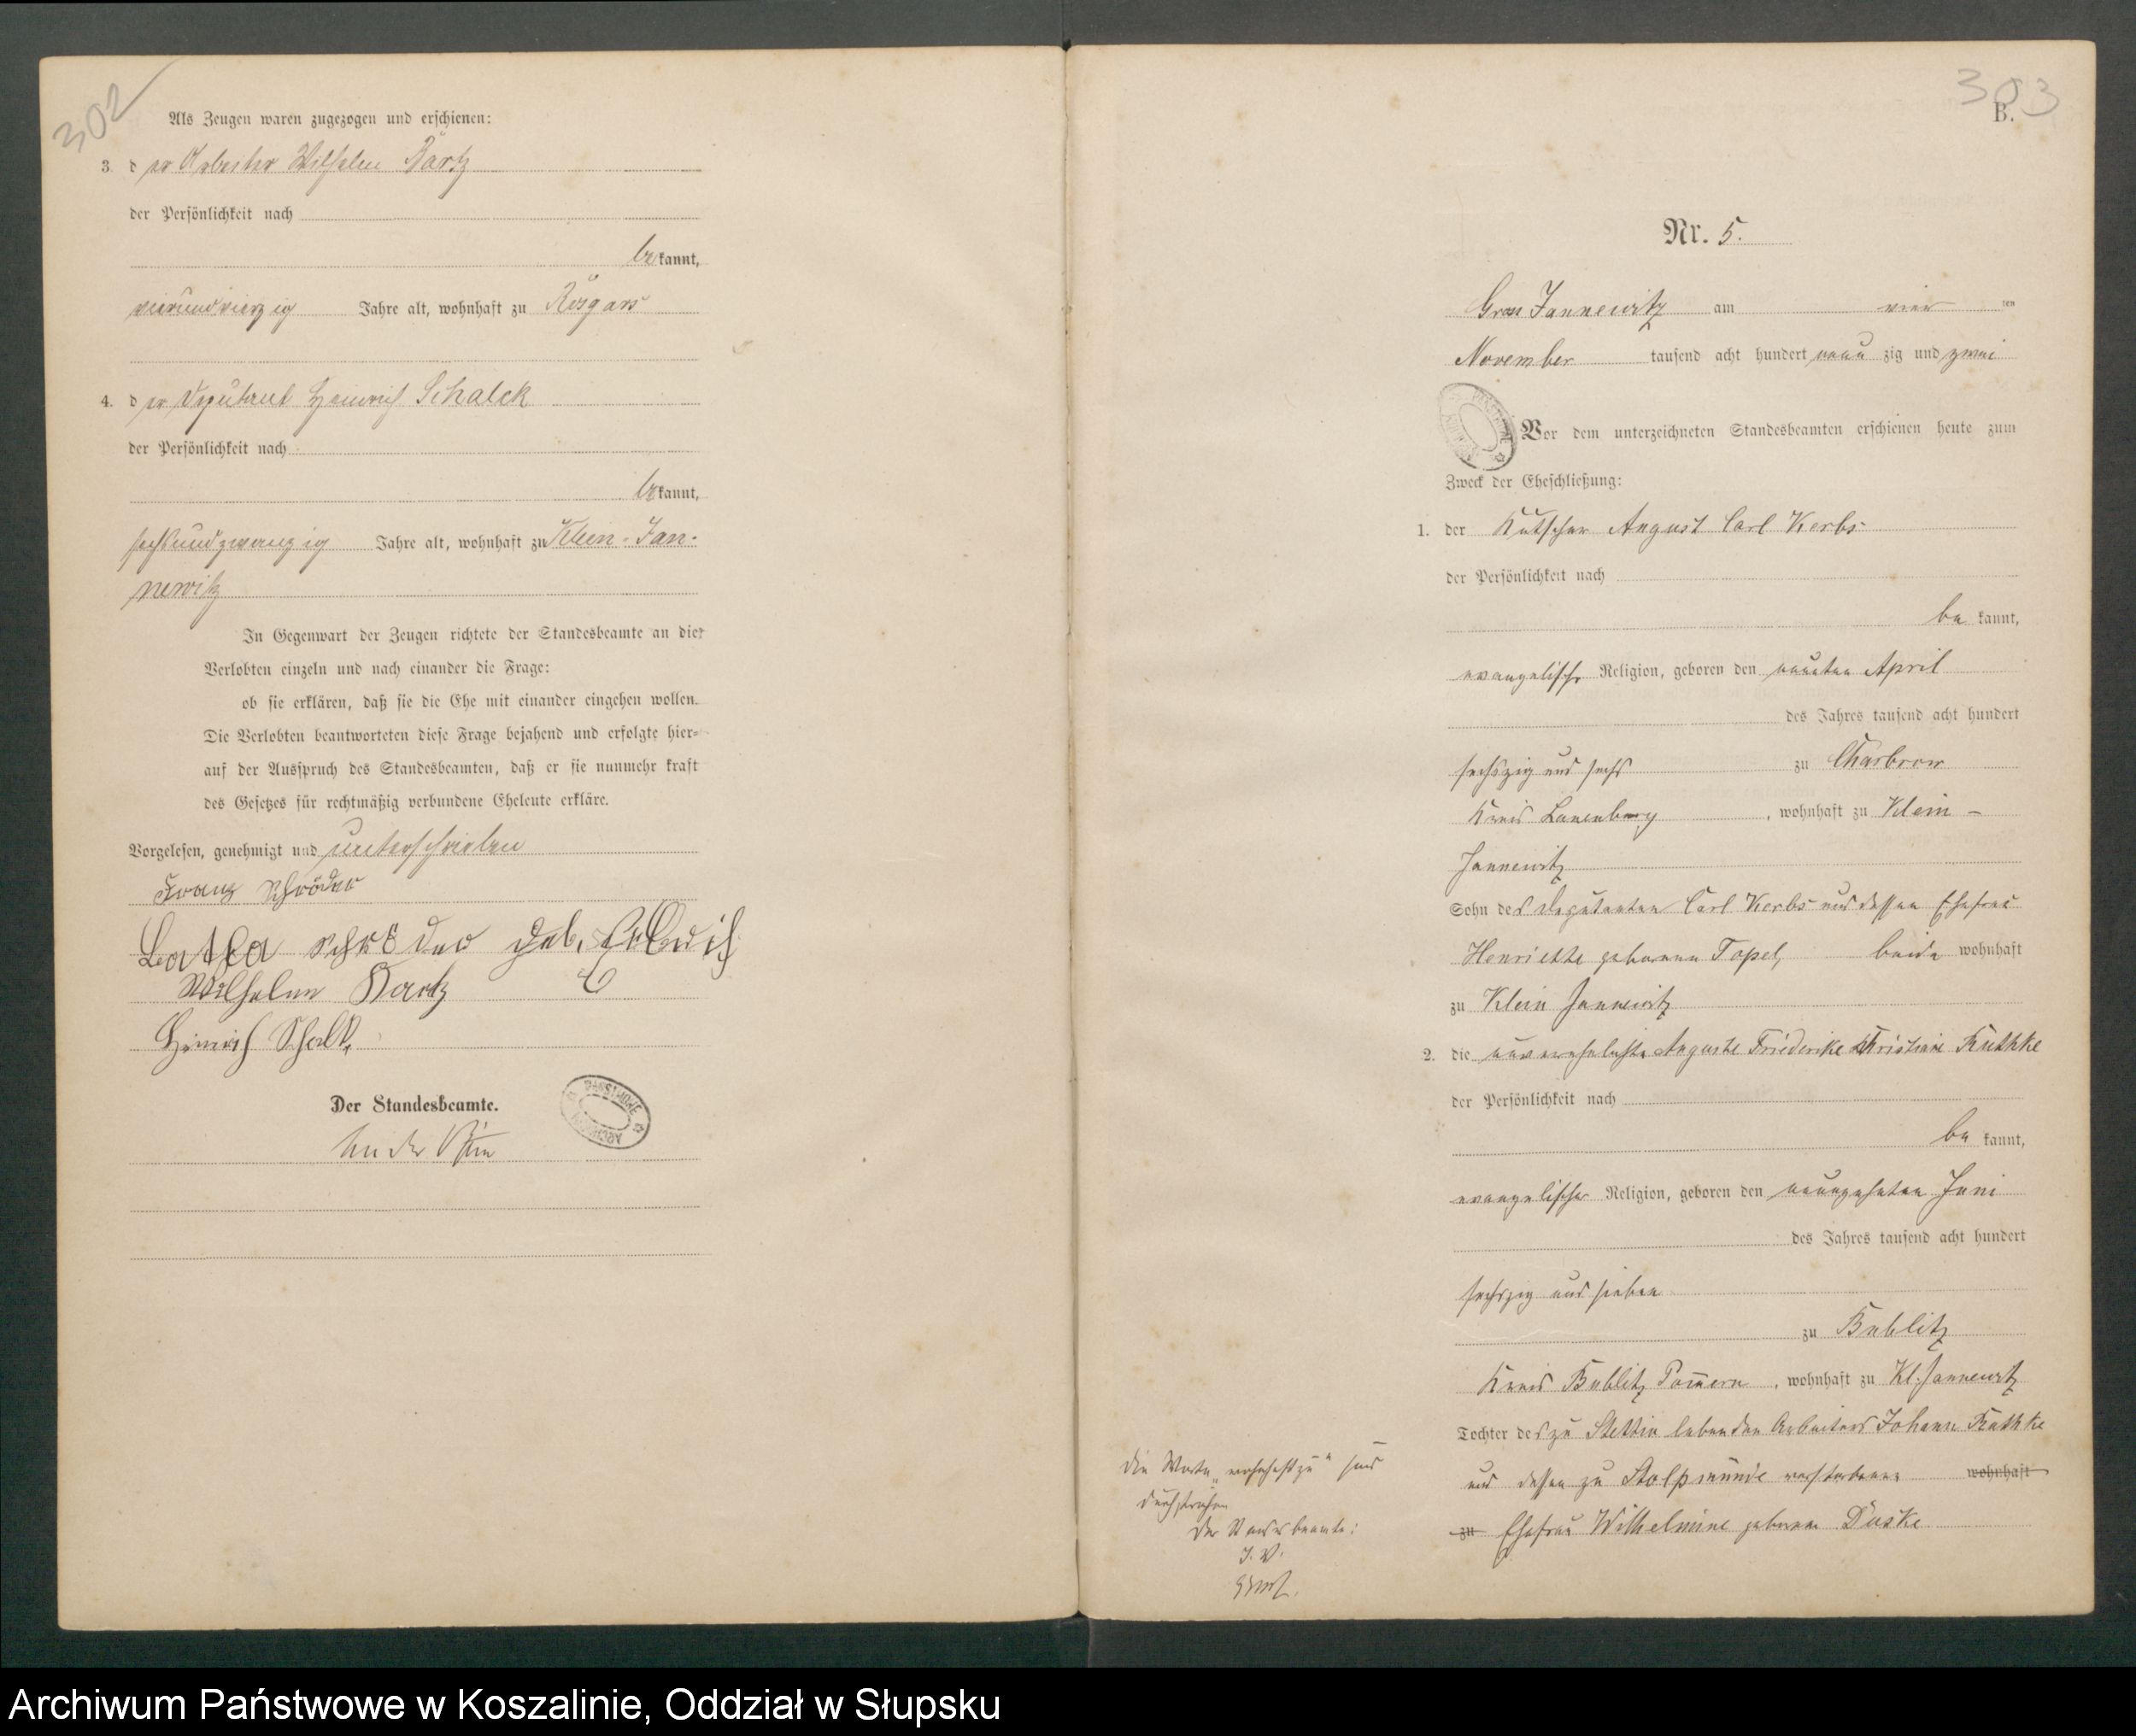 302
Als Zeugen waren zugezogen und erschienen:
3. der Arbeiter Wilhelm Bartz
der Persönlichkeit nach
bekannt,
vierundvierzig Jahre alt, wohnhaft zu Rösgars
4. der Deputant Heinrich Schalck
der Persönlichkeit nach
bekannt,
sechsundzwanzig Jahre alt, wohnhaft zu Klein-Jan-
newitz
In Gegenwart der Zeugen richtete der Standesbeamte an die
Verlobten einzeln und nach einander die Frage:
ob sie erklären, daß sie die Ehe mit einander eingehen wollen.
Die Verlobten beantworteten diese Frage bejahend und erfolgte hier-
auf der Ausspruch des Standesbeamten, daß er sie nunmehr kraft
des Gesetzes für rechtmäßig verbundene Eheleute erkläre.
Vorgelesen, genehmigt und unterschrieben
Franz Schröder
Schröder geb.
Wilhelm Bartz
Heinrich Schalk.
Der Standesbeamte.
ARCHIWUM PAŃSTWOWE
303
B.
Nr. 5.
Gross Jannewitz am vier ten
November tausend acht hundert neun zig und zwei
Vor dem unterzeichneten Standesbeamten erschienen heute zum
Zweck der Eheschließung:
1. der Kutscher August Carl Kerbs
der Persönlichkeit nach
be kannt,
evangelischer Religion, geboren den neunten April
des Jahres tausend acht hundert
sechszig und sechs zu Charbrow
Kreis Lauenburg, wohnhaft zu Klein-
Jannewitz
Sohn des Deputanten Carl Kerbs und dessen Ehefrau
Henriette geborenen Topel, beide wohnhaft
zu Klein Jannewitz
2. die unverehelichte Auguste Friederike Christiane Kuthke
der Persönlichkeit nach
be kannt,
evangelischer Religion, geboren den neunzehnten Juni
des Jahres tausend acht hundert
sechszig und sieben
zu Bublitz
Kreis Bublitz Pommern, wohnhaft zu Kl. Jannewitz
Tochter des zu Stettin lebenden Arbeiters Johann Kuthke
und dessen zu Stolpmünde verstorbenen wohnhaft
zu Ehefrau Wilhelmine geborenen Duske
Die Worte „wohnhaft zu" sind
durchstrichen
Der Standesbeamte:
I. V.
Archiwum Państwowe w Koszalinie, Oddział w Słupsku